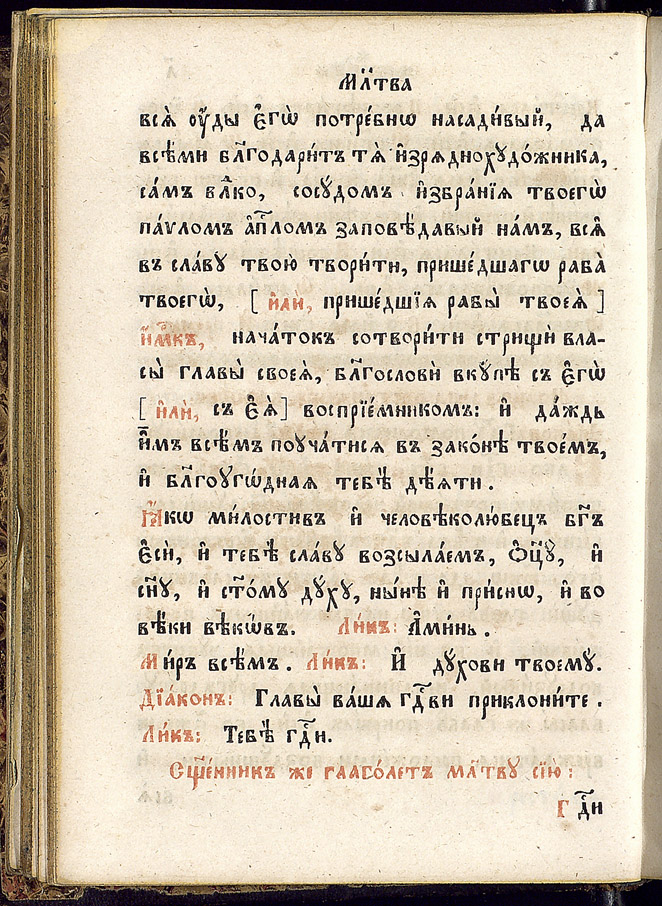 Мл҃тва
всѧ̑ ᲂу҆́ды є҆гѡ̀ потре́бнѡ насади́вый, да
всѣ́ми бл҃годари́тъ тѧ̀ и҆зрѧднохꙋдо́жника,
са́мъ влⷣко, сосꙋ́домъ и҆збра́нїѧ твоегѡ̀
па́ѵломъ а҆пⷭ҇ломъ заповѣ́давый на́мъ, всѧ̑
въ сла́вꙋ твою̀ твори́ти, прише́дшаго раба̀
твоегѡ̀, [ и҆лѝ, прише́дшїѧ рабы̀ твоеѧ̀ ]
и҆́мⷬ҇къ, нача́токъ сотвори́ти стрищѝ вла-
сы̀ главы̀ своеѧ̀, бл҃гословѝ вкꙋ́пѣ съ є҆гѡ̀
[ и҆лѝ, съ є҆ѧ̀ ] воспрїе́мникомъ: и҆ да́ждь
и҆̀мъ всѣ́мъ поꙋча́тисѧ въ зако́нѣ твое́мъ,
и҆ бл҃гоꙋгѡ́днаѧ тебѣ̀ дѣ́ѧти.
Ꙗ҆́кѡ ми́лостивъ и҆ человѣколю́бецъ бг҃ъ
є҆сѝ, и҆ тебѣ̀ сла́вꙋ возсыла́емъ, ѻ҆ц҃ꙋ̀, и҆
сн҃ꙋ, и҆ ст҃о́мꙋ дꙋ́хꙋ, ны́нѣ и҆ при́снѡ, и҆ во
вѣ́ки вѣкѡ́въ. Ли́къ: А҆ми́нь.
Ми́ръ всѣ́мъ. Ли́къ: И҆ дꙋ́хови твоемꙋ̀.
Дїа́конъ: Главы̑ ва́шѧ гдⷭ҇ви приклони́те.
Ли́къ: Тебѣ̀ гдⷭ҇и.
Сщ҃е́нникъ же глаго́летъ мл҃твꙋ сїю̀:
Гдⷭ҇и